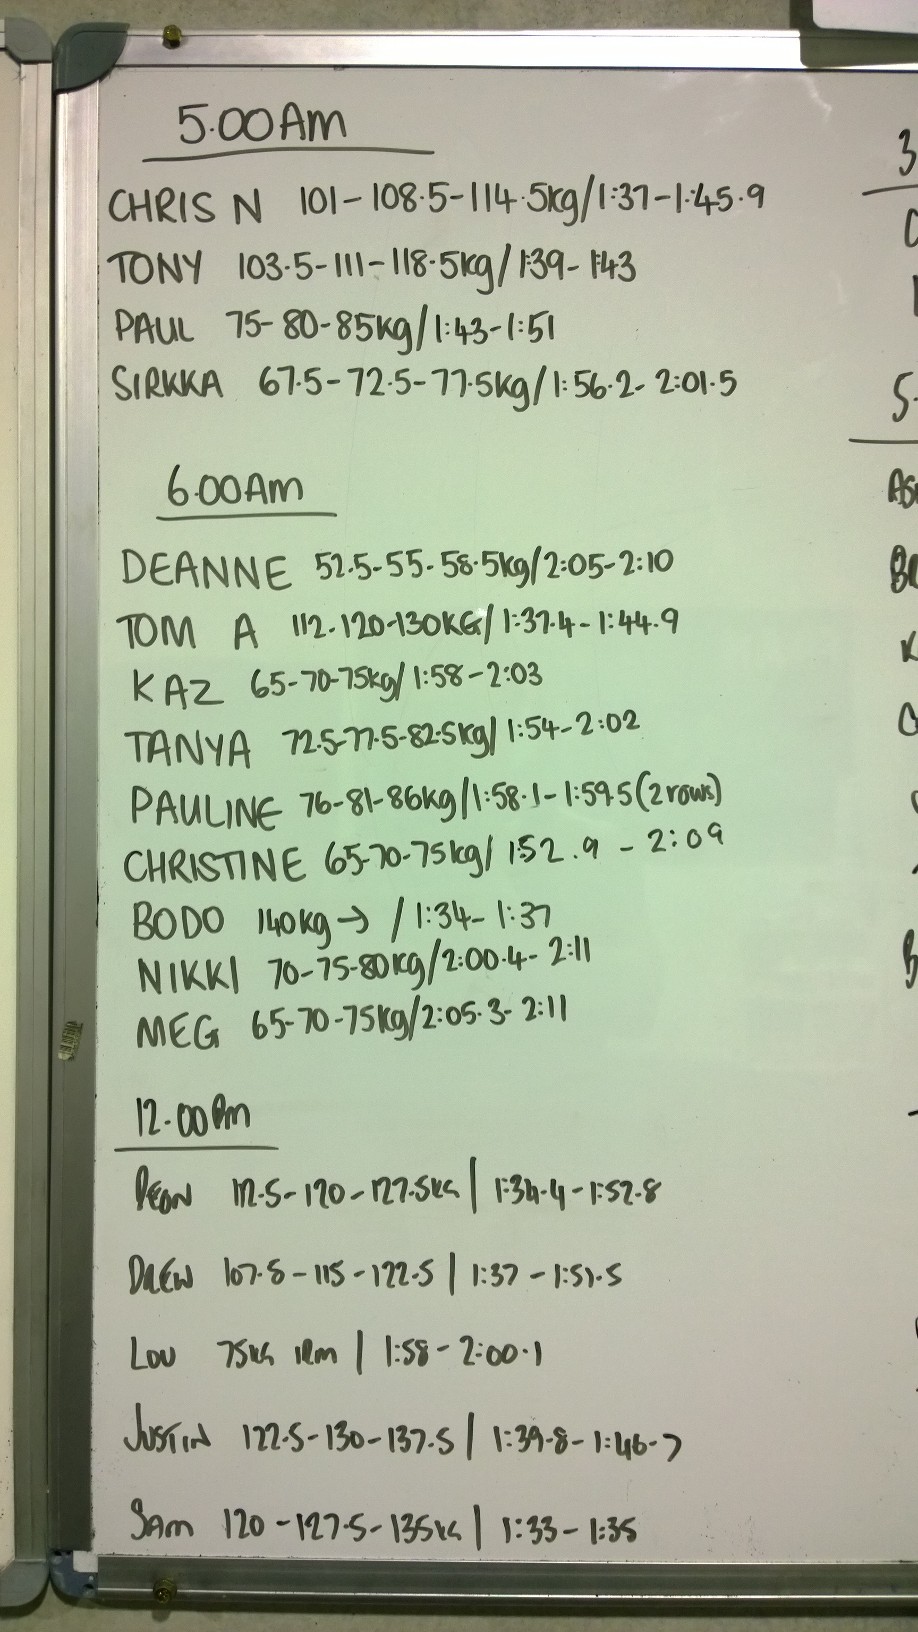 5.00AM
CHRIS N 101-108.5-114.5kg/1:37-1:45.9
TONY 103.5-111-118.5kg/1:39-1:43
PAUL 75-80-85kg/1:43-1:51
SIRKKA 67.5-72.5-77.5kg/1:56.2-2:01.5
6.00AM
DEANNE 52.5-55-58.5kg/2:05-2:10
TOM A 112-120-130KG/1:37.4-1:44.9
KAZ 65-70-75kg/1:58-2:03
TANYA 72.5-77.5-82.5kg/1:54-2:02
PAULINE 76-81-86kg/1:58.1-1:59.5(2 rows)
CHRISTINE 65-70-75kg/1:52.9-2:09
BODO 140kg→ /1:34-1:37
NIKKI 70-75-80kg/2:00.4-2:11
MEG 65-70-75kg/2:05.3-2:11
12.00Pm
DEON 112.5-120-127.5KG | 1:34.4-1:52.8
DREW 107.5-115-122.5 | 1:37-1:51.5
LOU 75KG 1RM | 1:58-2:00.1
JUSTIN 122.5-130-137.5 | 1:39.8-1:46.7
SAM 120-127.5-135KG | 1:33-1:35
3
5.
K